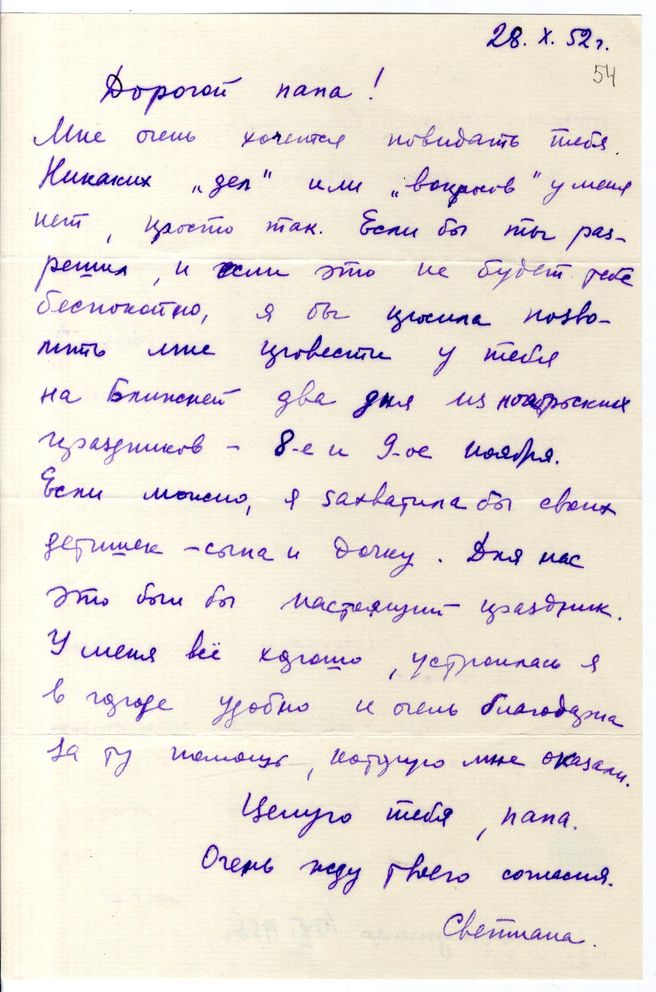 28. X. 52 г.
54
Дорогой папа!
Мне очень хочется повидать тебя.
Никаких „дел" или „вопросов" у меня
нет, просто так. Если бы ты раз-
решил, и если это не будет тебе
беспокойно, я бы просила позво-
лить мне провести у тебя
на Ближней два дня из ноябрьских
праздников – 8-е и 9-ое ноября.
Если можно, я захватила бы своих
детишек – сына и дочку. Для нас
это был бы настоящий праздник.
У меня всё хорошо, устроилась я
в городе удобно и очень благодарна
за ту помощь, которую мне оказали.
Целую тебя, папа.
Очень жду твоего согласия.
Светлана.